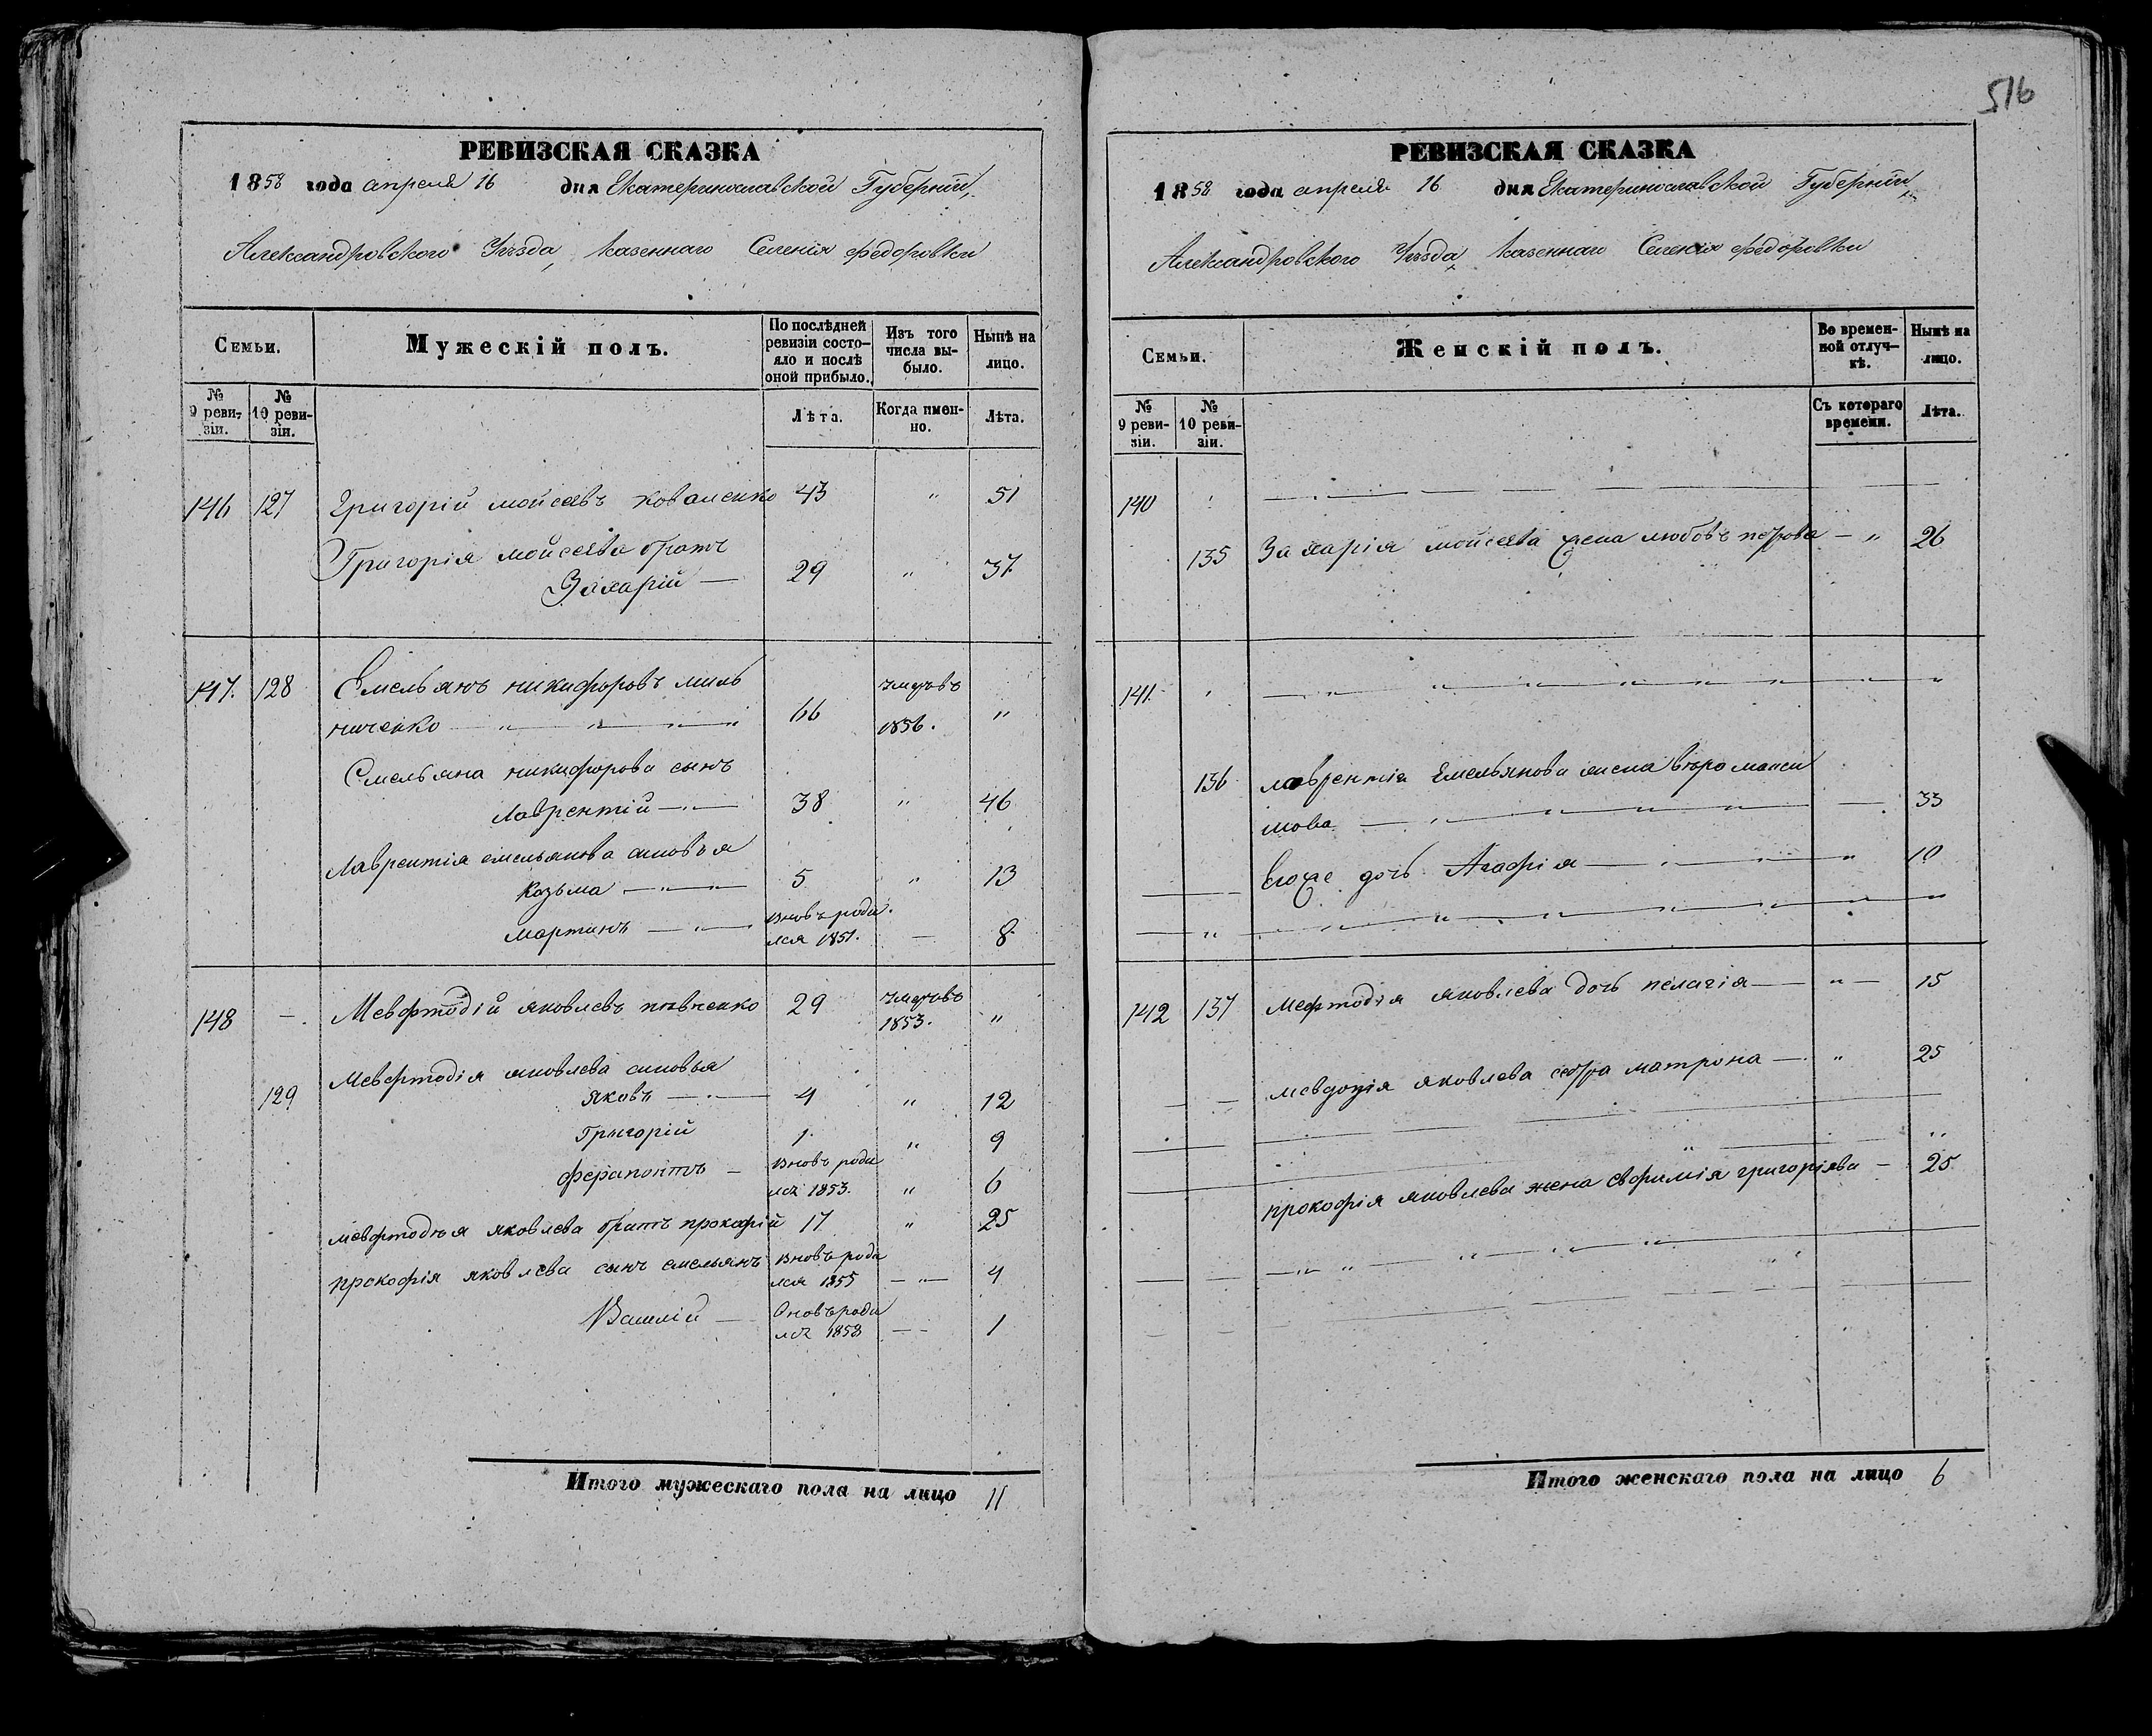 516
РЕВИЗСКАЯ СКАЗКА
1858 года апреля 16 дня Екатеринославской Губернiи,
Александровского Уѣзда, казеннаго Селенiя федоровки
Семьи.
Мужескiй полъ.
По послѣдней ревизiи состо-яло и послѣ оной прибыло.
Изъ того числа вы-было.
Нынѣ на лицо.
№ 9 реви-зiи.
№ 10 реви-зiи.
Лѣта.
Когда имен-но.
Лѣта.
146 127 Григорiй мойсеевъ коваленко 43 " 51
Григорiя мойсеева братъ
Захарiй — 29 " 37
147. 128 Емельянъ никифоровъ миль умеръ въ
ниченко — " — " — " — " 66 1856. "
Емельяна никифорова сынъ
Лаврентiй — " — 38 " 46
Лаврентiя емельянова сыновья
Козьма — " — " — 5 " 13
Мартинъ — " — вновь роди
лся 1851. — 8
148 — Мевфтодiй яковлевъ 29 умеръ въ
1853. "
Мевфтодiя яковлева сыновья
129 яковъ — " — 4 " 12
Григорiй 1 " 9
ферапонтъ — вновь роди
лся 1853. " 6
мевфтодѣя яковлева братъ прокофiй 17 " 25
прокофiя яковлева сынъ емельянъ вновь роди
лся 1855 — " — 4
Василiй — вновь роди
лся 1858 — — 1
Итого мужескаго пола на лицо 11
РЕВИЗСКАЯ СКАЗКА
1858 года апреля 16 дня Екатеринославской Губернiи,
Александровского Уѣзда, казеннаго Селенiя федоровки
Семьи.
Женскiй полъ.
Во времен-ной отлуч-кѣ.
Нынѣ на лицо.
№ 9 реви-зiи.
№ 10 реви-зiи.
Съ котораго времени.
Лѣта.
140
135 Захарiя мойсеева жена любовь петрова — " 26
141
136 лаврентiя Емельянова жена вѣра макси
мова — " — " — " — " — 33
Егоже дочь Агафiя — " — " — " 10
142 137 Мефтодiя яковлева дочь пелагiя — " — 15
яковлева сестра матрона — " 25
прокофiя яковлева жена Евфимiя григорiява — 25
Итого женскаго пола на лицо 6